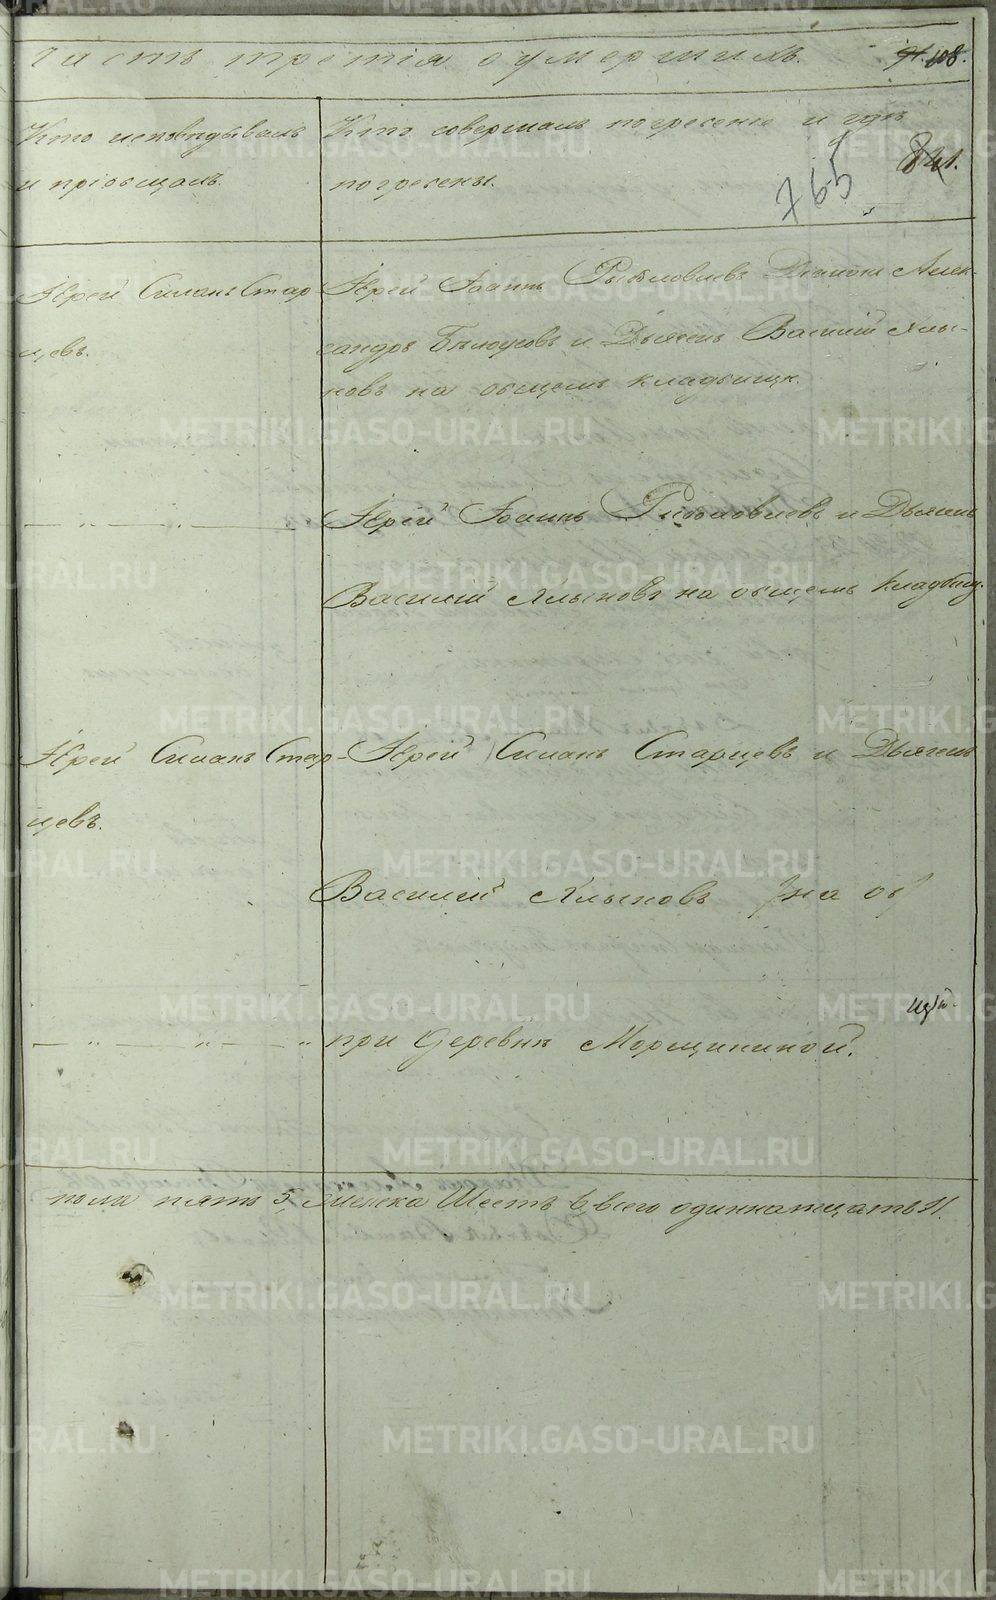 Часть третія о умершихъ. 108.
Кто исповѣдывалъ
и пріобщалъ.
Кто совершалъ погребеніе и гдѣ
погребены.
765
841.
Іерей Симонъ Стар-
цевъ.
Іерей Іоаннъ Діаконъ Алек-
сандръ Бѣлоусовъ и Дьячекъ Василій Хлы-
новъ на общемъ кладбищѣ.
— „ — „ —
Іерей Іоаннъ и Дьячекъ
Василій Хлыновъ на общемъ кладбищ.
Іерей Симонъ Стар-
цевъ.
Іерей Симонъ Старцевъ и Дьячекъ
Василій Хлыновъ на об
— „ — „ — „
при деревнѣ Морщининой.
пола пять 5, женска шесть 6, всего одиннатцать 11.
METRIKI.GASO-URAL.RU